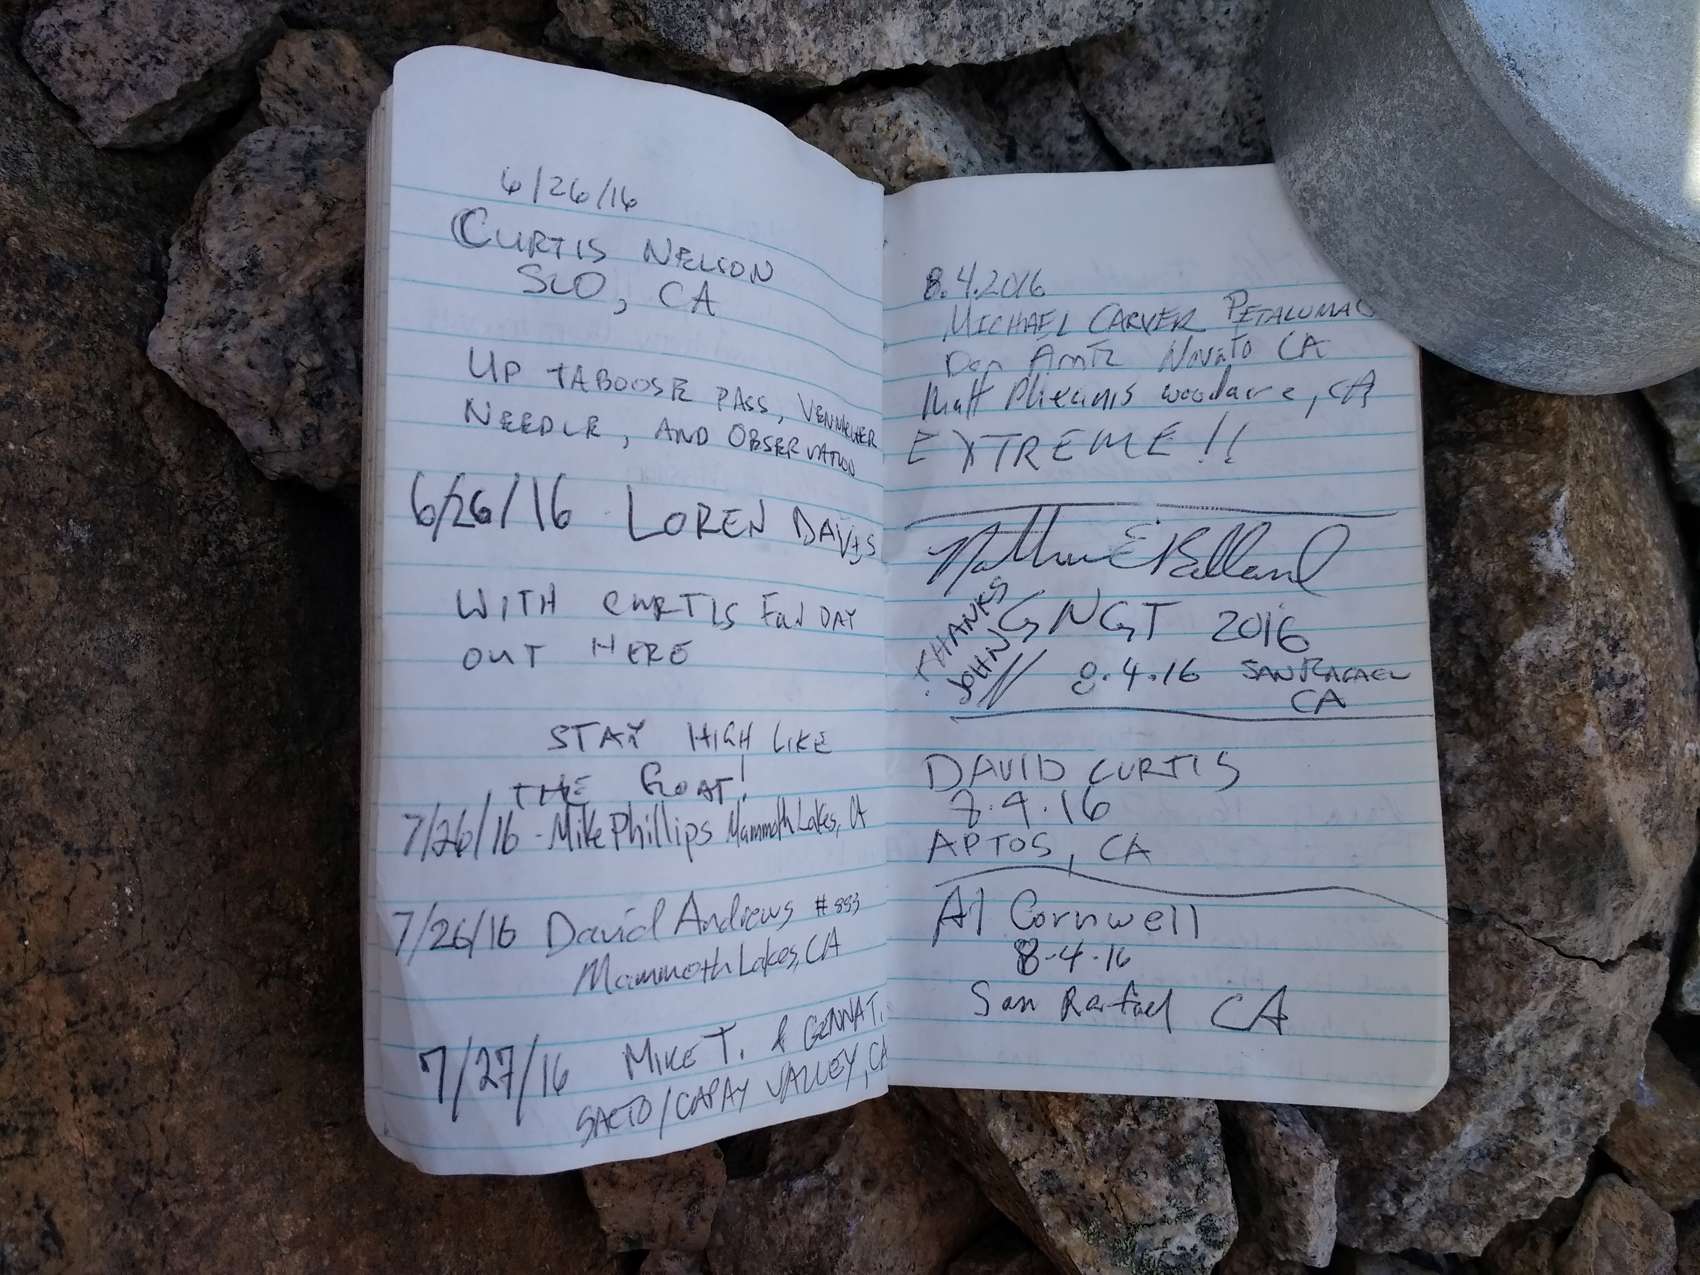 6/26/16
CURTIS NELSON
SLO, CA
UP TABOOSE PASS, VENNACHER
NEEDLE, AND OBSERVATION
6/26/16 LOREN DAVIS
WITH CURTIS FUN DAY
OUT HERE
STAY HIGH LIKE
THE GOAT!
7/26/16 - Mike Phillips Mammoth Lakes, CA
7/26/16 David Andrews #893
Mammoth Lakes, CA
7/27/16 MIKE T. & GENNA T.
SACTO/CAPAY VALLEY, CA
8.4.2016
MICHAEL CARVER PETALUMA
Dan Novato CA
Matt CA
EXTREME!!
Nathan E Ballard
THANKS
JOHN
GNGT 2016
8.4.16 SAN RAFAEL
CA
DAVID CURTIS
8.4.16
APTOS, CA
Al Cornwell
8-4-16
San Rafael CA